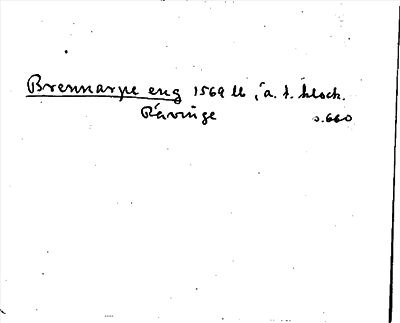 Brennarpe eng 1569 lb, a. t. klock.
Rävinge s. 660